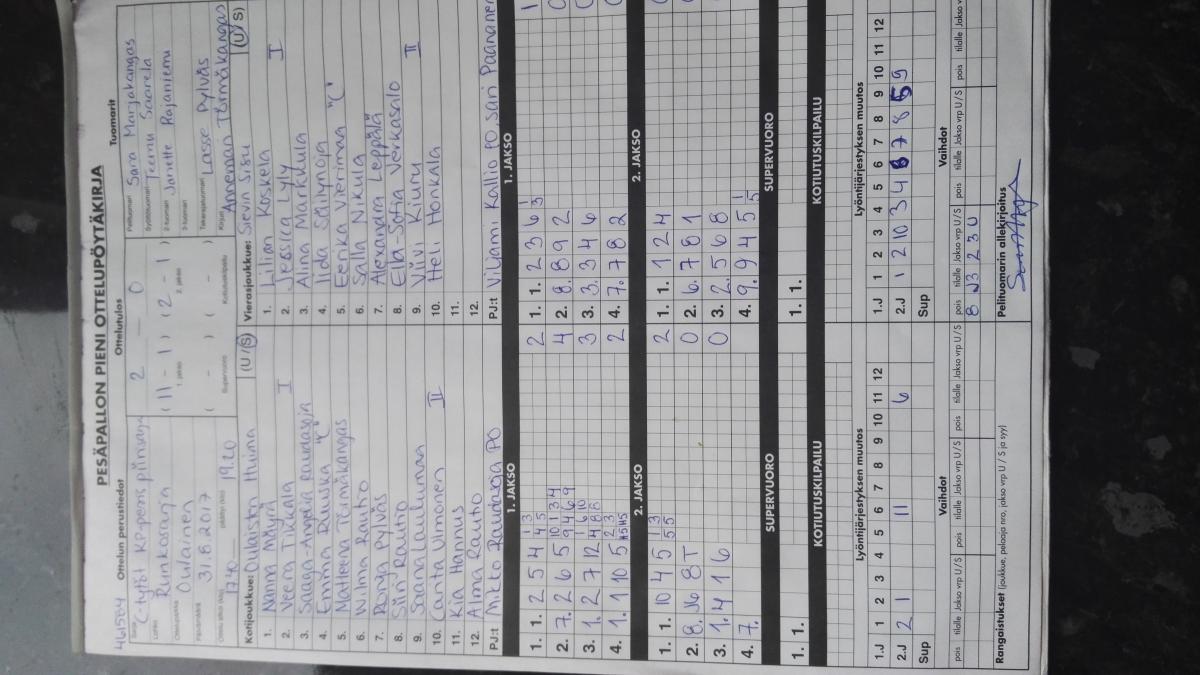 PESÄPALLON PIENI OTTELUPÖYTÄKIRJA
461504 Ottelun perustiedot
Ottelutulos
Tuomarit
Sarja C-tytöt KP-perus piirisarja
Lohko
Ottelupaikka Oulainen
Päivämäärä 31.8.2017
Ottelu alkoi (klo) 1740 päättyi (klo) 19.20
2 — 0
( 11 - 1 ) ( 2 - 1 )
1. jakso 2. jakso
( - ) ( - )
Supervuoro Kotiutuskilpailu
Pelituomari Sara Marjakangas
Syöttötuomari Teemu Saarela
2-tuomari Janette Rajaniemi
3-tuomari
Takarajatuomari Lasse Pylväs
Kirjuri Annemari Törmäkangas
Kotijoukkue: Oulaisten Huima (U/S)
1. Nanna Mäyrä
2. Veera Tikkala I
3. Saaga-Angelia Raudasoja
4. Emma Ruuska "C"
5. Matleena Törmäkangas
6. Wilma Rautio
7. Ronja Pylväs
8. Siiri Rautio
9. Saana Laulumaa
10. Carita Vimonen II
11. Kia Hannus
12. Alma Rautio
PJ:t Mikko Raudasoja PO
Vierasjoukkue: Sievin Sisu (U/S)
1. Lilian Koskela I
2. Jessica Lyly
3. Alina Markkula
4. Iida Säilynoja
5. Eerika Vierimaa "C"
6. Salla Nikula
7. Alexandra Leppälä
8. Ella-Sofia Verkasalo
9. Viivi Kiuru II
10. Heli Honkala
11.
12.
PJ:t Viljami Kallio PO, Sari Paananen
1. JAKSO
1. JAKSO
1. 1. 2 5 4 2
2. 7. 2 6 5 4
3. 1. 2 7 12 3
4. 1. 1 10 5 2
1. 1. 2 3 6
2. 8. 8 9 2
3. 3. 3 4 6
4. 7. 7 8 2
2. JAKSO
2. JAKSO
1. 1. 10 4 5 2
2. 8. 6 8 T 0
3. 1. 4 1 6 0
4. 7.
1. 1. 1 2 4
2. 6. 7 8 1
3. 2. 5 6 8
4. 9. 9 4 5
SUPERVUORO
SUPERVUORO
1. 1.
1. 1.
KOTIUTUSKILPAILU
KOTIUTUSKILPAILU
Lyöntijärjestyksen muutos
Lyöntijärjestyksen muutos
1.J 1 2 3 4 5 6 7 8 9 10 11 12
2.J 2 1 11 6
Sup
1.J 1 2 3 4 5 6 7 8 9 10 11 12
2.J 1 2 10 3 4 6 7 8 5 9
Sup
Vaihdot
Vaihdot
pois tilalle Jakso vrp U/S pois tilalle Jakso vrp U/S pois tilalle Jakso vrp U/S
pois tilalle Jakso vrp U/S pois tilalle Jakso vrp U/S pois tilalle Jakso vrp U/S
Rangaistukset (joukkue, pelaaja nro, jakso vrp U / S ja syy)
Pelituomarin allekirjoitus